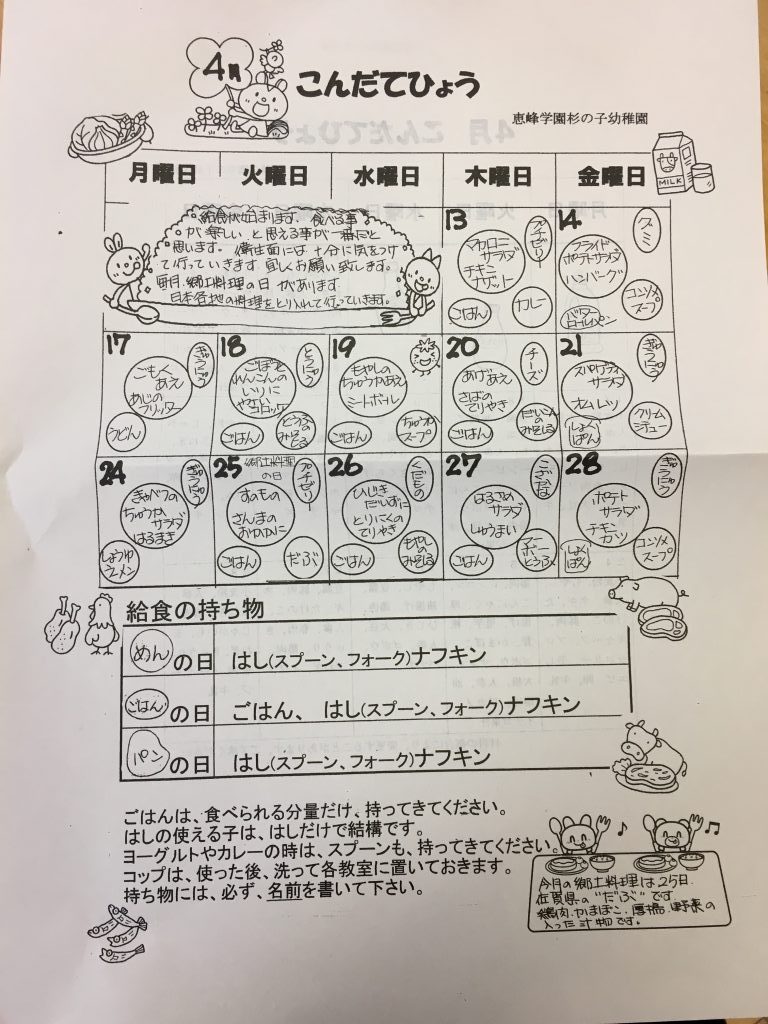 4月
こんだてひょう
恵峰学園杉の子幼稚園
MILK
月曜日 火曜日 水曜日 木曜日 金曜日
給食が始まります。食べる事
が"楽しい"と思える事が一番だと
思います。衛生面には十分に気をつけ
て行っていきます。宜しくお願い致します。
毎月、郷土料理の日があります。
日本各地の料理をとり入れて行っていきます。
13
プチゼリー
マカロニー
サラダ
チキン
ナゲット
ごはん
カレー
14
グミ
フライド
ポテトサラダ
ハンバーグ
バター
ロールパン
コンソメ
スープ
17
ぎゅうにゅう
ごもく
あえ
あじの
フリッター
うどん
18
とうにゅう
ごぼうと
れんこんの
いりに
やさい
コロッケ
ごはん
とうふの
みそしる
19
もやしの
ちゅうかあえ
ミートボール
ごはん
ちゅうか
スープ
20
チーズ
あげあえ
さばの
てりやき
ごはん
だいこん
のみそしる
21
ぎゅうにゅう
スパゲティ
サラダ
オムレツ
しょく
ぱん
クリーム
シチュー
24
ぎゅうにゅう
きゃべつの
ちゅうか
サラダ
はるまき
しょうゆ
ラーメン
25
郷土料理
の日
プチゼリー
すのもの
さんまの
おかかに
ごはん
だぶ
26
くだもの
ひじき
だいずに
とりにくの
てりやき
ごはん
もやし
のみそしる
27
はるさめ
サラダ
しゅうまい
ごはん
マー
ボー
とうふ
28
ぎゅうにゅう
ポテト
サラダ
チキン
カツ
しょく
ぱん
コンソメ
スープ
給食の持ち物
めんの日 はし(スプーン、フォーク)ナフキン
ごはんの日 ごはん、 はし(スプーン、フォーク)ナフキン
パンの日 はし(スプーン、フォーク)ナフキン
ごはんは、食べられる分量だけ、持ってきてください。
はしの使える子は、はしだけで結構です。
ヨーグルトやカレーの時は、スプーンも、持ってきてください。
コップは、使った後、洗って各教室に置いておきます。
持ち物には、必ず、名前を書いて下さい。
今月の郷土料理は25日.
佐賀県の"だぶ"です。
鶏肉.かまぼこ.厚揚.野菜の
入った汁物です。